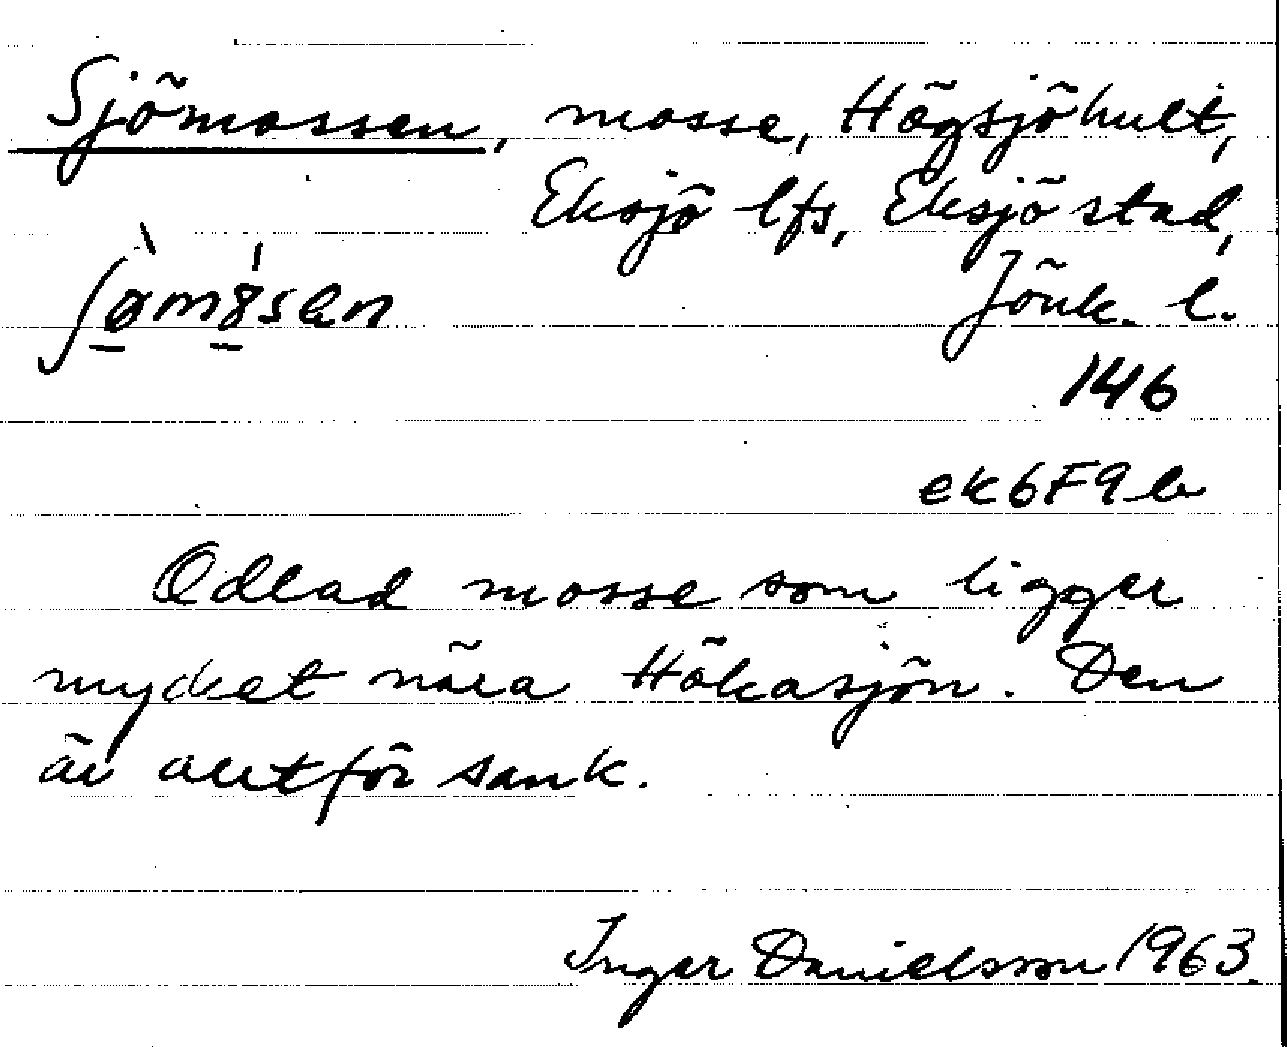 Sjömossen, mosse, Högsjöhult,
Eksjö lfs, Eksjö stad,
Jönk. l.
146
ek6F9b
Odlad mosse som ligger
mycket nära Hökasjön. Den
är alltför sank.
Inger Danielsson 1963.